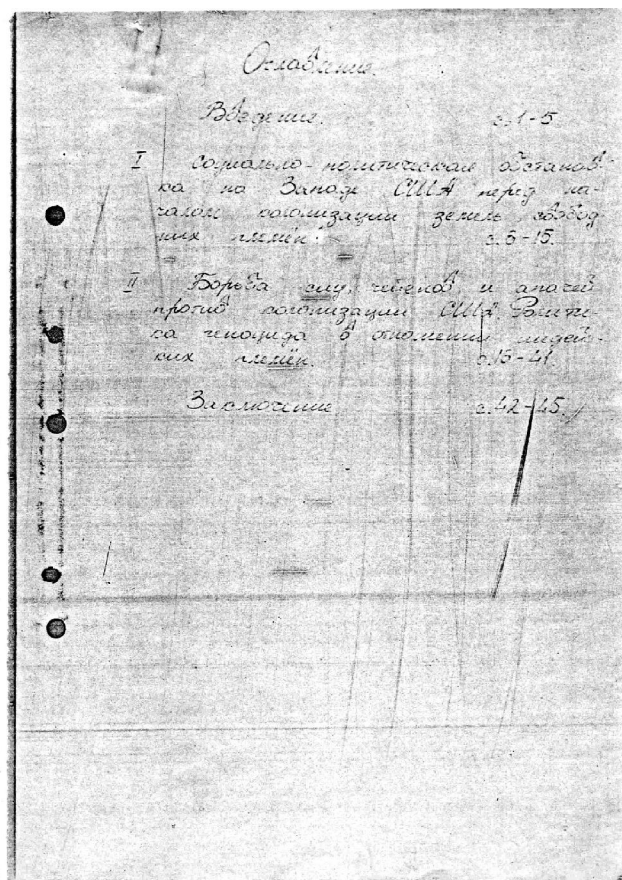 Оглавление.
Введение. с.1-5
I Социально-политическая обстанов-
ка на Западе США перед на-
чалом колонизации земель свобод-
ных племён. с.6-15.
II Борьба сиу, чейенов и апачей
против колонизации США. Полити-
ка геноцида в отношении индей-
ских племён. с.15-41.
Заключение с.42-45.